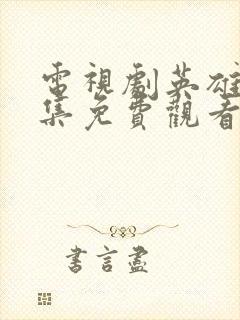 電視劇英雄
集免費觀看
書言盡